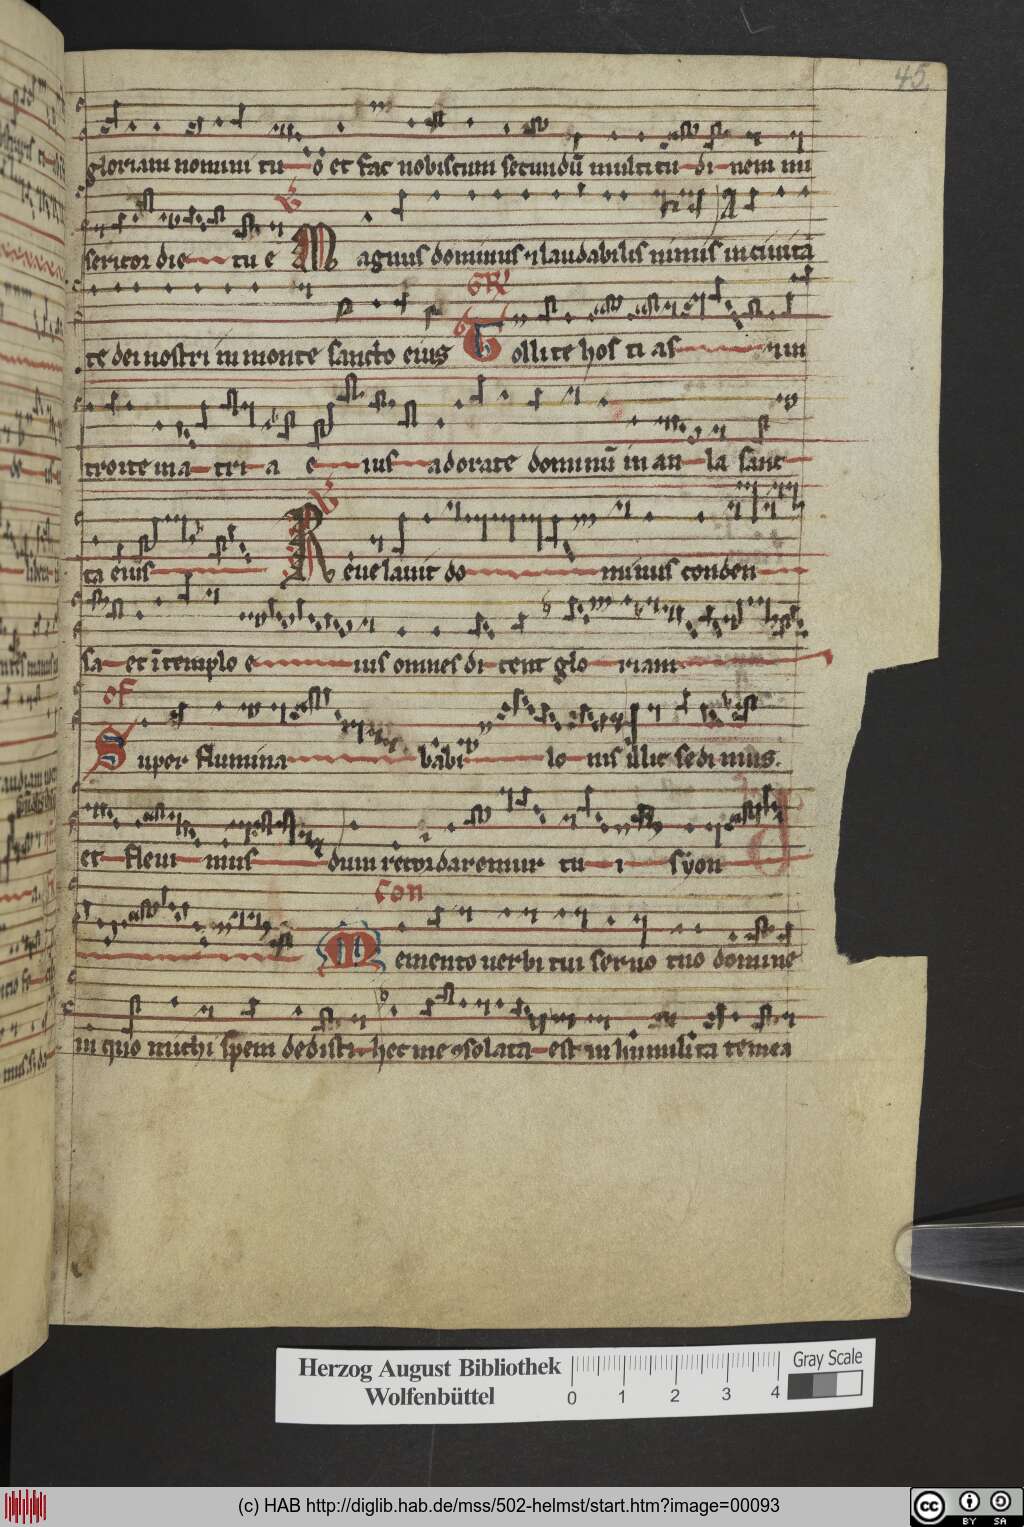 45.
gloriam nomini tu o et fac nobiscum secundū multitu di nem mi
sericor die tu e Magnus dominus ⁊ laudabilis nimis in civita
GR
te dei nostri in monte sancto eius Tollite hos ti as ⁊ in
troite in a tri a e ius adorate dominū in au la sanc
ta eius Revelavit do minus conden
sa et ī templo e ius omnes di cent glo riam
OF
Super flumina babi lo nis illic sedi mus.
et flevi mus dum recordaremur tu i syon
CON
Memento verbi tui servo tuo domine
in quo michi spem dedisti hec me ꝯsolata est in humilita te mea
Herzog August Bibliothek
Wolfenbüttel
0 1 2 3 4
Gray Scale
(c) HAB http://diglib.hab.de/mss/502-helmst/start.htm?image=00093
cc BY SA